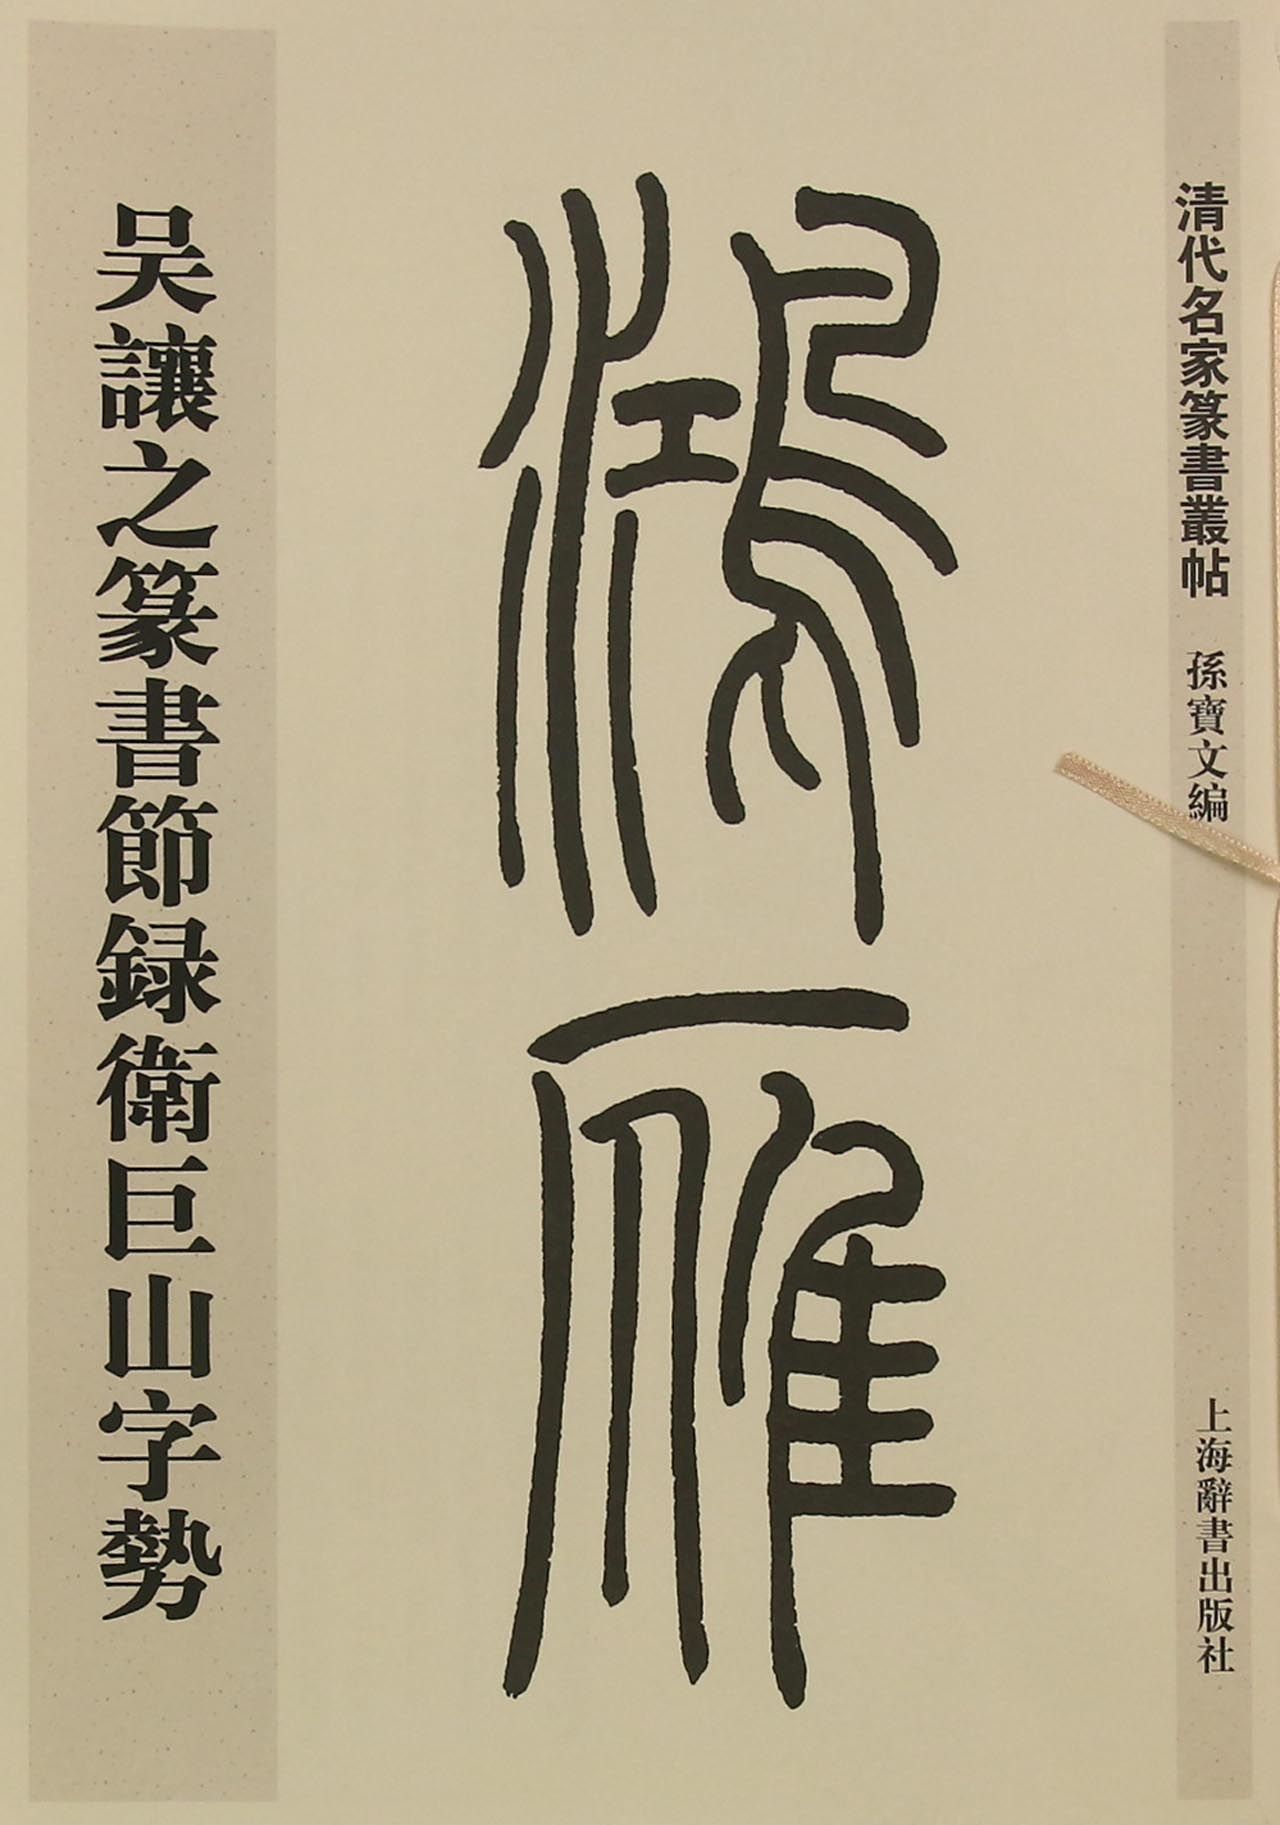 清代名家篆書叢帖 孫寶文編
上海辭書出版社
鴻雁
吴讓之篆書節録衛巨山字勢